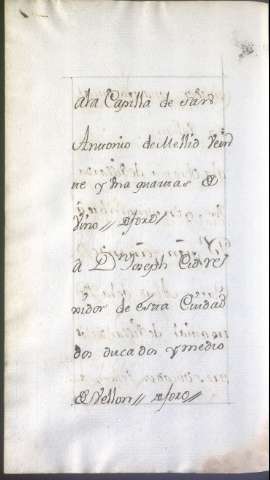 ala Capilla de San
Antonio de Mellid Vein
te y una quartas de
Vino // 
a Dn. Joseph
xidor de esta Ciudad
dos ducados y medio
de Vellon //